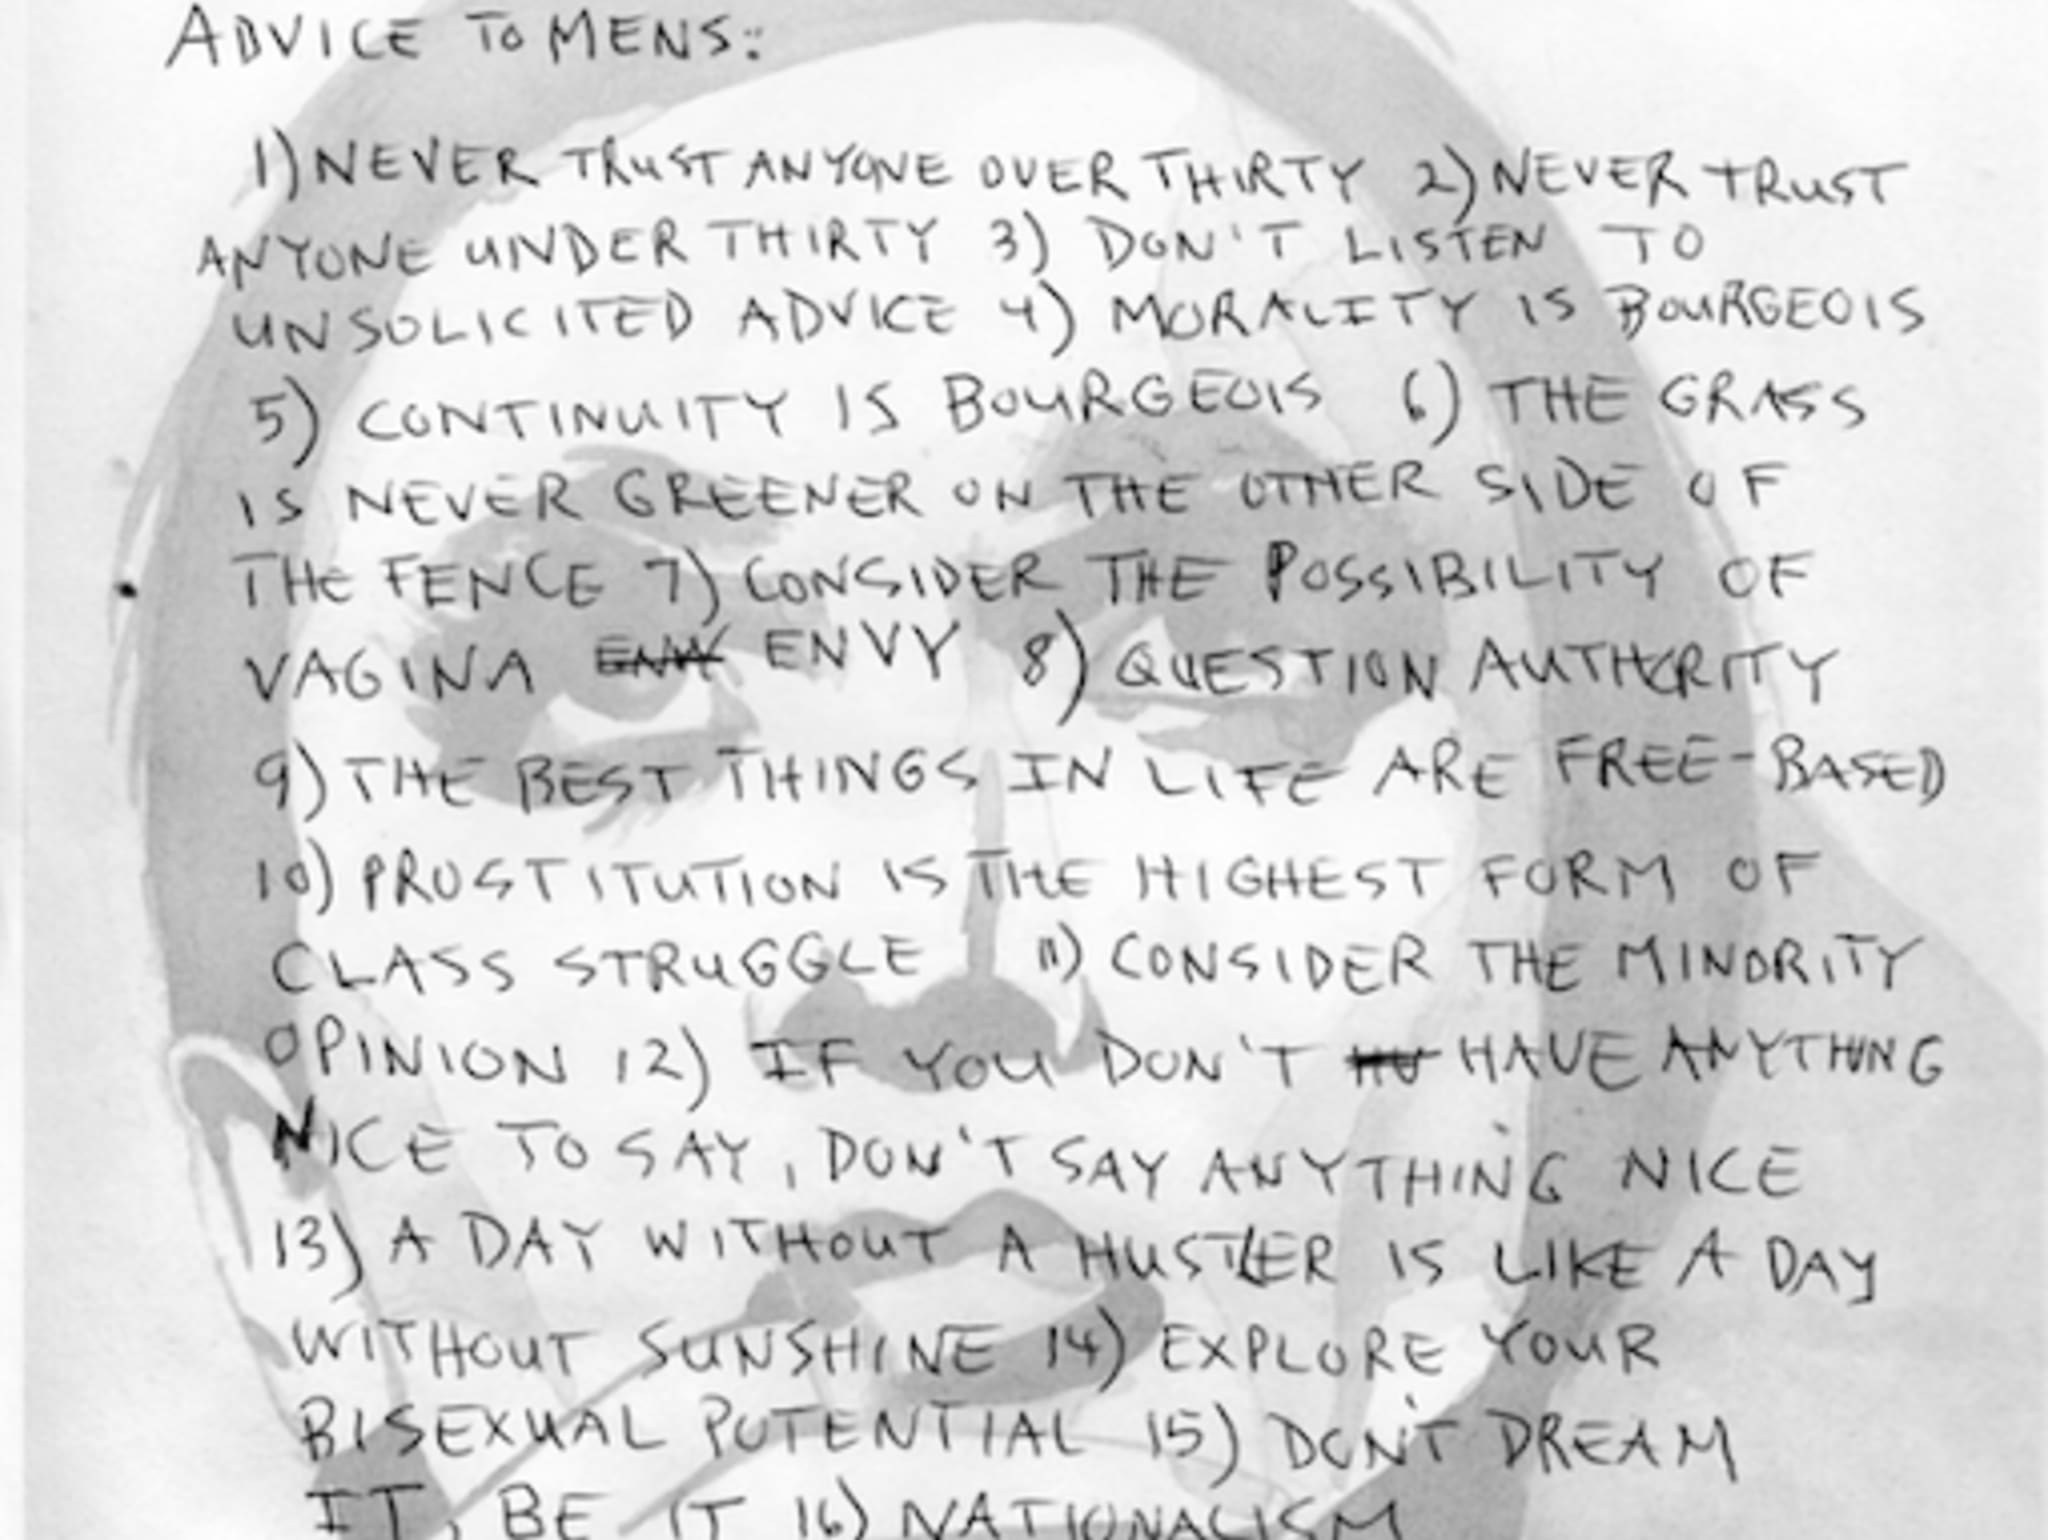 ADVICE TO MENS:
1) NEVER TRUST ANYONE OVER THIRTY 2) NEVER TRUST
ANYONE UNDER THIRTY 3) DON'T LISTEN TO
UNSOLICITED ADVICE 4) MORALITY IS BOURGEOIS
5) CONTINUITY IS BOURGEOIS 6) THE GRASS
IS NEVER GREENER ON THE OTHER SIDE OF
THE FENCE 7) CONSIDER THE POSSIBILITY OF
VAGINA ENVY 8) QUESTION AUTHORITY
9) THE BEST THINGS IN LIFE ARE FREE-BASED
10) PROSTITUTION IS THE HIGHEST FORM OF
CLASS STRUGGLE 11) CONSIDER THE MINORITY
OPINION 12) IF YOU DON'T HAVE ANYTHING
NICE TO SAY, DON'T SAY ANYTHING NICE
13) A DAY WITHOUT A HUSTLER IS LIKE A DAY
WITHOUT SUNSHINE 14) EXPLORE YOUR
BISEXUAL POTENTIAL 15) DON'T DREAM
IT, BE IT 16) NATIONALISM